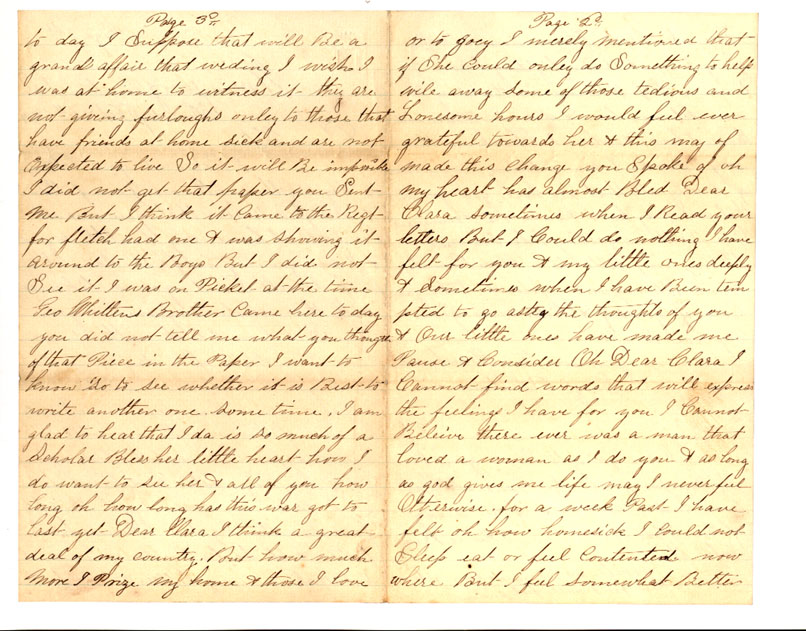 Page 3
to day I Suppose that will Be a
grand affair that weding I wish I
was at home to witness it they are
not giveing furloughs onley to those that
have friends at home sick and are not
Expected to live So it will Be impossible
I did not get that paper you Sent
me But I think it Came to the Regt
for fletch had one & was Showing it
around to the Boys But I did not
See it I was on Picket at the time
Geo Whittens Brother Came here to day
you did not tell me what you thought
of that Piece in the Paper I want to
know So to see whether it is Best to
write another one Some time. I am
glad to hear that Ida is so much of a
Scholar Bless her little heart how I
do want to see her & all of you how
long oh how long has this war got to
last yet Dear Clara I think a great
deal of my country. But how much
More I Prize my home & those I love
Page
or to Joey I merely mentioned that
if She Could onley do Something to help
wile away some of those tedious and
Lonesome hours I would feel ever
grateful towards her & this may of
made this Change you Spoke of oh
my heart has almost Bled Dear
Clara sometimes when I Read your
letters But I Could do nothing I have
felt for you & my little ones deeply
& Sometimes when I have Been tem
pted to go the thoughts of you
& Our little ones have made me
Pause & Consider Oh Dear Clara I
Cannot find words that will express
the feelings I have for you I Cannot
Beleive there ever was a man that
loved a woman as I do you & as long
as god gives me life may I never feel
Otherwise. for a week Past I have
felt oh how homesick I Could not
Sleep eat or feel Contented now
where But I feel somewhat Better